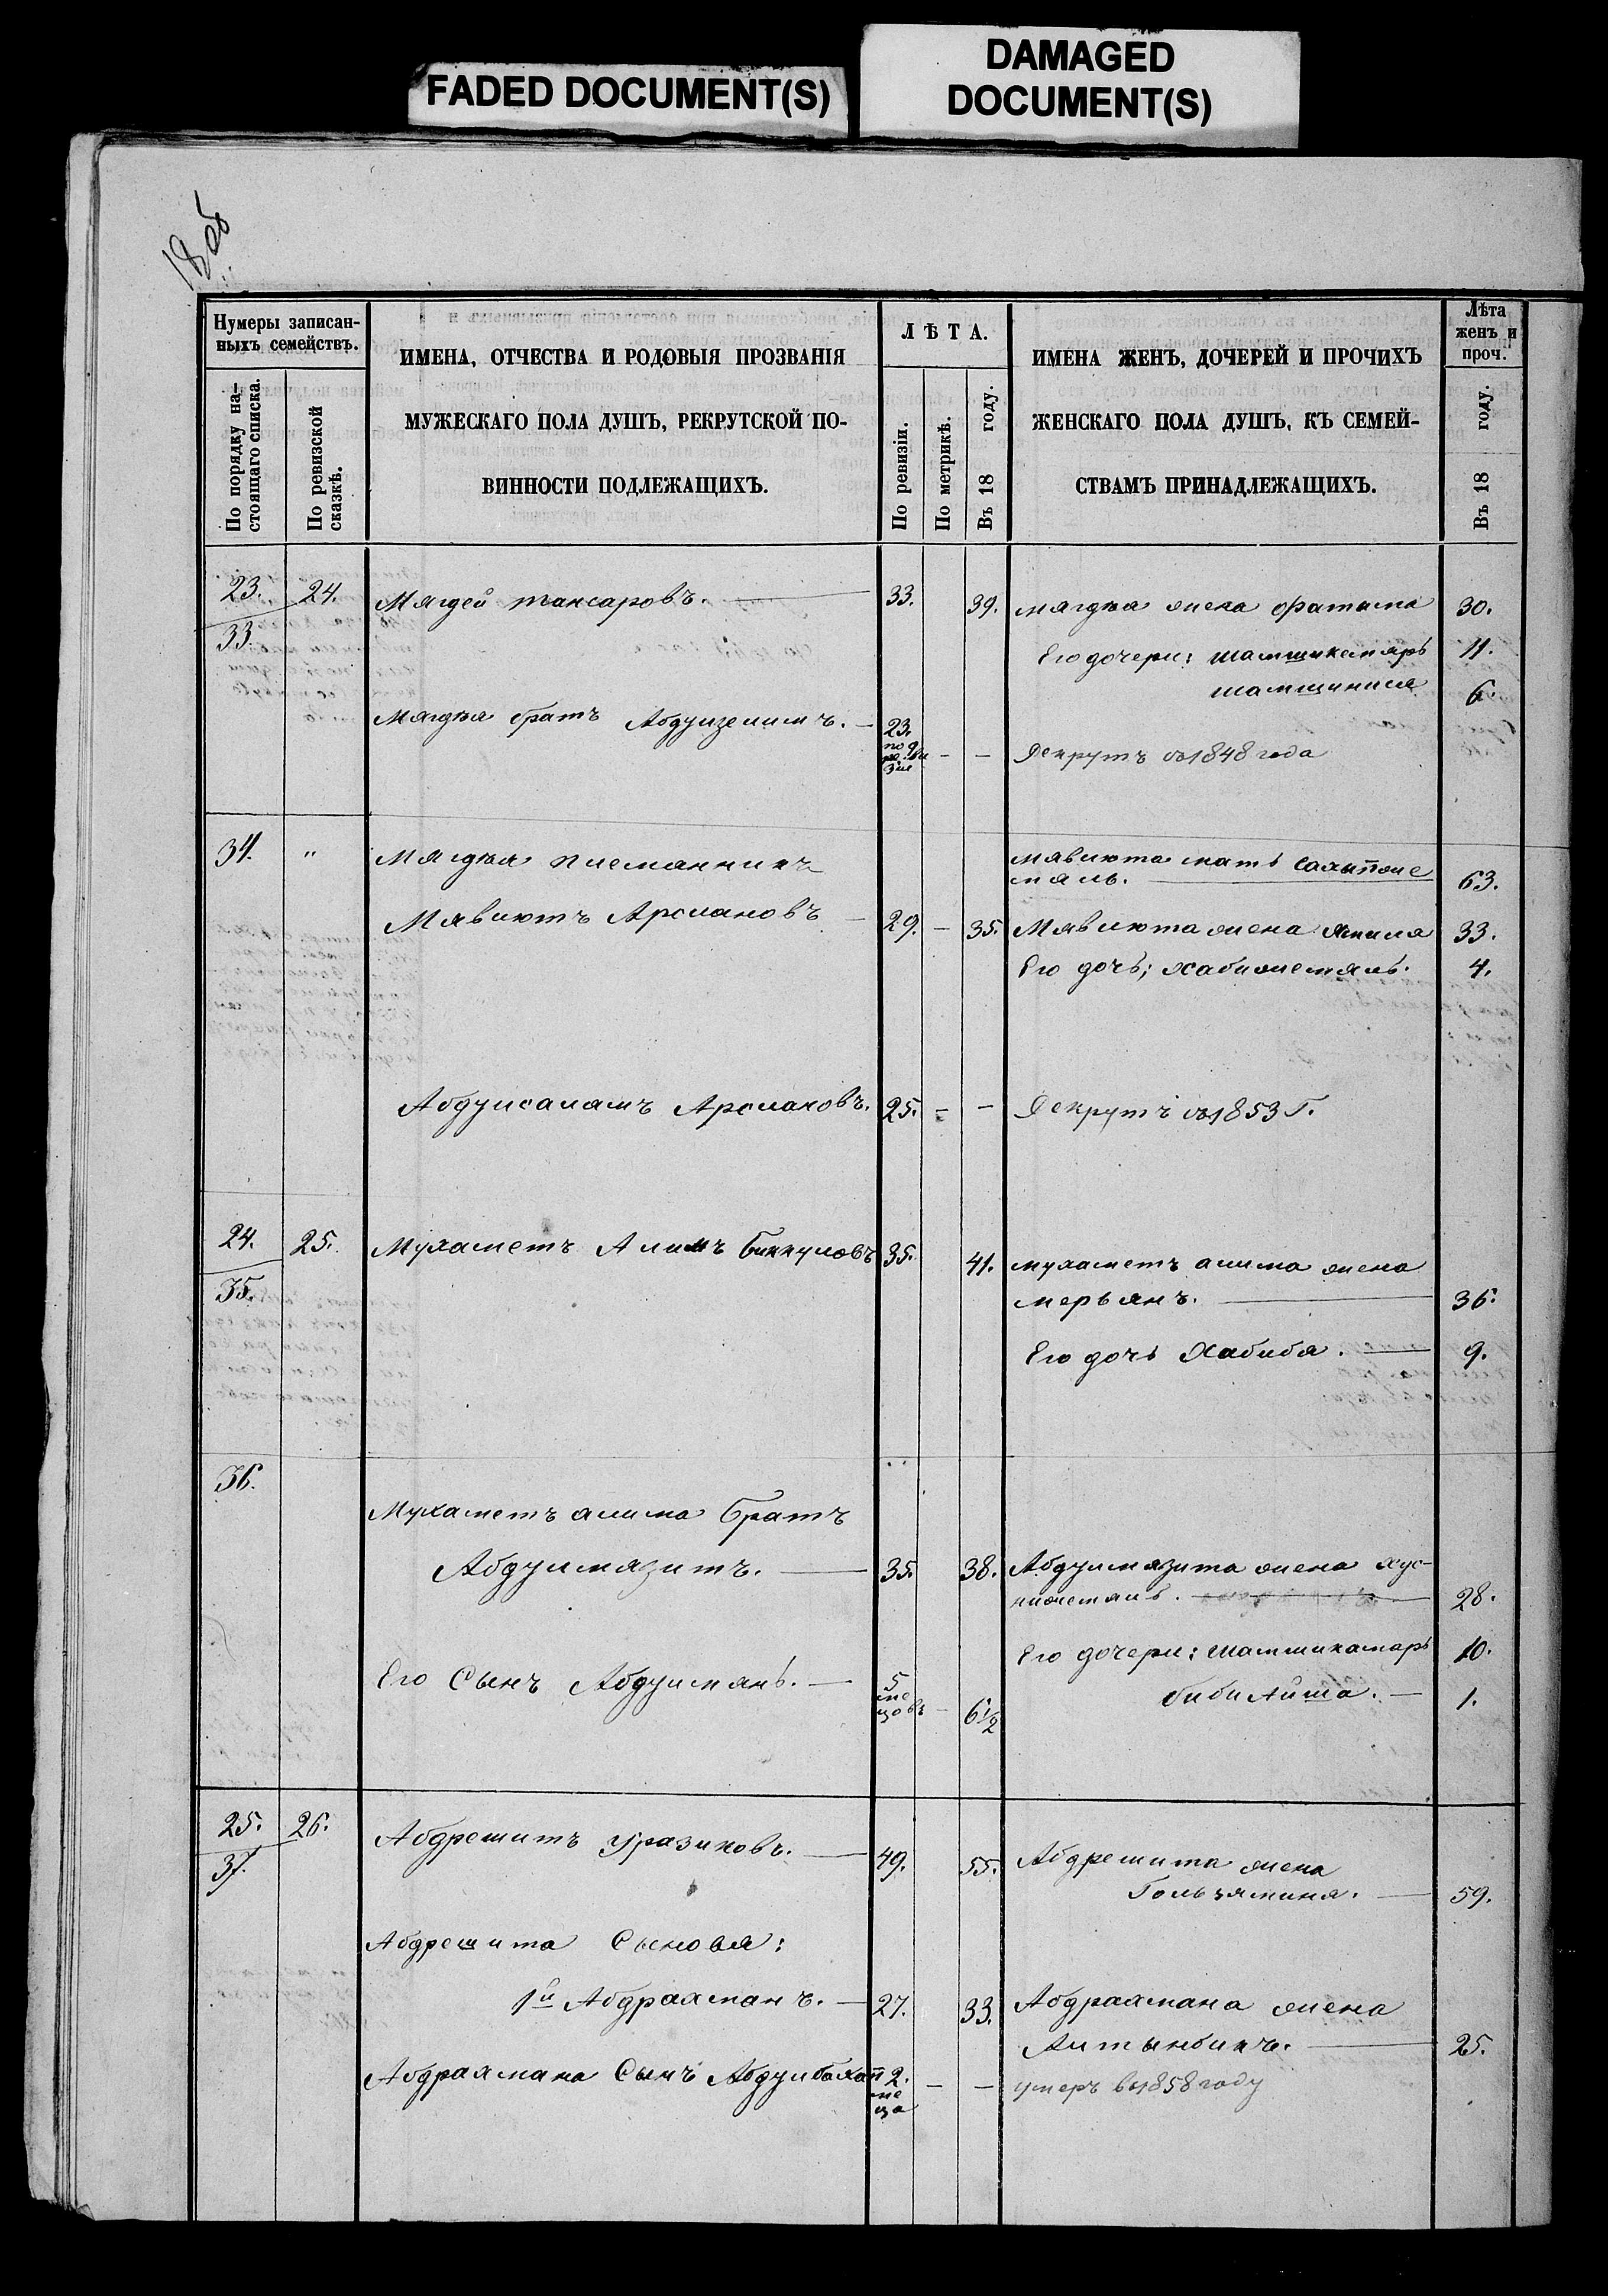 FADED DOCUMENT(S)
DAMAGED
DOCUMENT(S)
18 об
Нумеры записан-
ныхъ семействъ.
По порядку на-
стоящаго списка.
По ревизской
сказкѣ.
ИМЕНА, ОТЧЕСТВА И РОДОВЫЯ ПРОЗВАНІЯ
МУЖЕСКАГО ПОЛА ДУШЪ, РЕКРУТСКОЙ ПО-
ВИННОСТИ ПОДЛЕЖАЩИХЪ.
ЛѢТА.
По ревизіи.
По метрикѣ.
Въ 18 году.
ИМЕНА ЖЕНЪ, ДОЧЕРЕЙ И ПРОЧИХЪ
ЖЕНСКАГО ПОЛА ДУШЪ, КЪ СЕМЕЙ-
СТВАМЪ ПРИНАДЛЕЖАЩИХЪ.
Лѣта
женъ и
проч.
Въ 18 году.
23. 24. Мягдей 33. 39. мягдея жена фатима 30.
33.
Его дочери: шамшикамяръ 11.
6.
Мягдея братъ 23. — — Рекрутъ въ 1848 года
34. " Мягдея племянникъ
мавлюта мать
63.
Мавлютъ Арслановъ — 29. — 35. Мавлюта жена 33.
Его дочь; хабижемяль. 4.
Абдулсаламъ Арслановъ. 25. — — Рекрутъ въ 1853 г.
24. 25. Мухаметъ Алимъ Биккуловъ 35. 41. мухаметъ алима жена
35.
мерьянъ. 36.
Его дочь Хабибя. 9.
36.
Мухаметъ алима братъ
Абдулмязитъ. 35. 38. Абдулмязита жена хус-
нижемяль. 28.
Его дочери: шамшикамаръ 10.
Его Сынъ Абдулмянъ. — 5 ме цовъ — 6 1/2 биби Айша. — 1.
25. 26. Абдрешитъ Уразиковъ. 49. 55. Абдрешита жена
37.
59.
Абдрешита Сыновья:
1й Абдрахманъ. — 27. 33. Абдрахмана жена
Алтынбикъ. 25.
Абдрахмана Сынъ 2. ме ца — — умеръ въ 1858 году